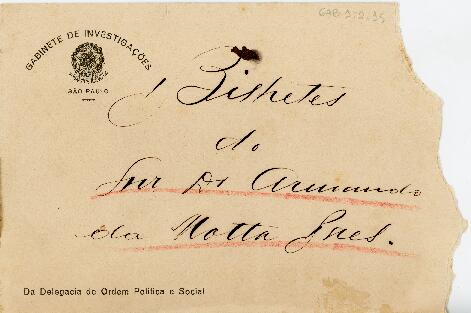 GAB-1-2-35
GABINETE DE INVESTIGAÇÕES
SÃO PAULO
Bilhetes
do
Snr Dr Armando
da Motta Paes.
Da Delegacia de Ordem Politica e Social